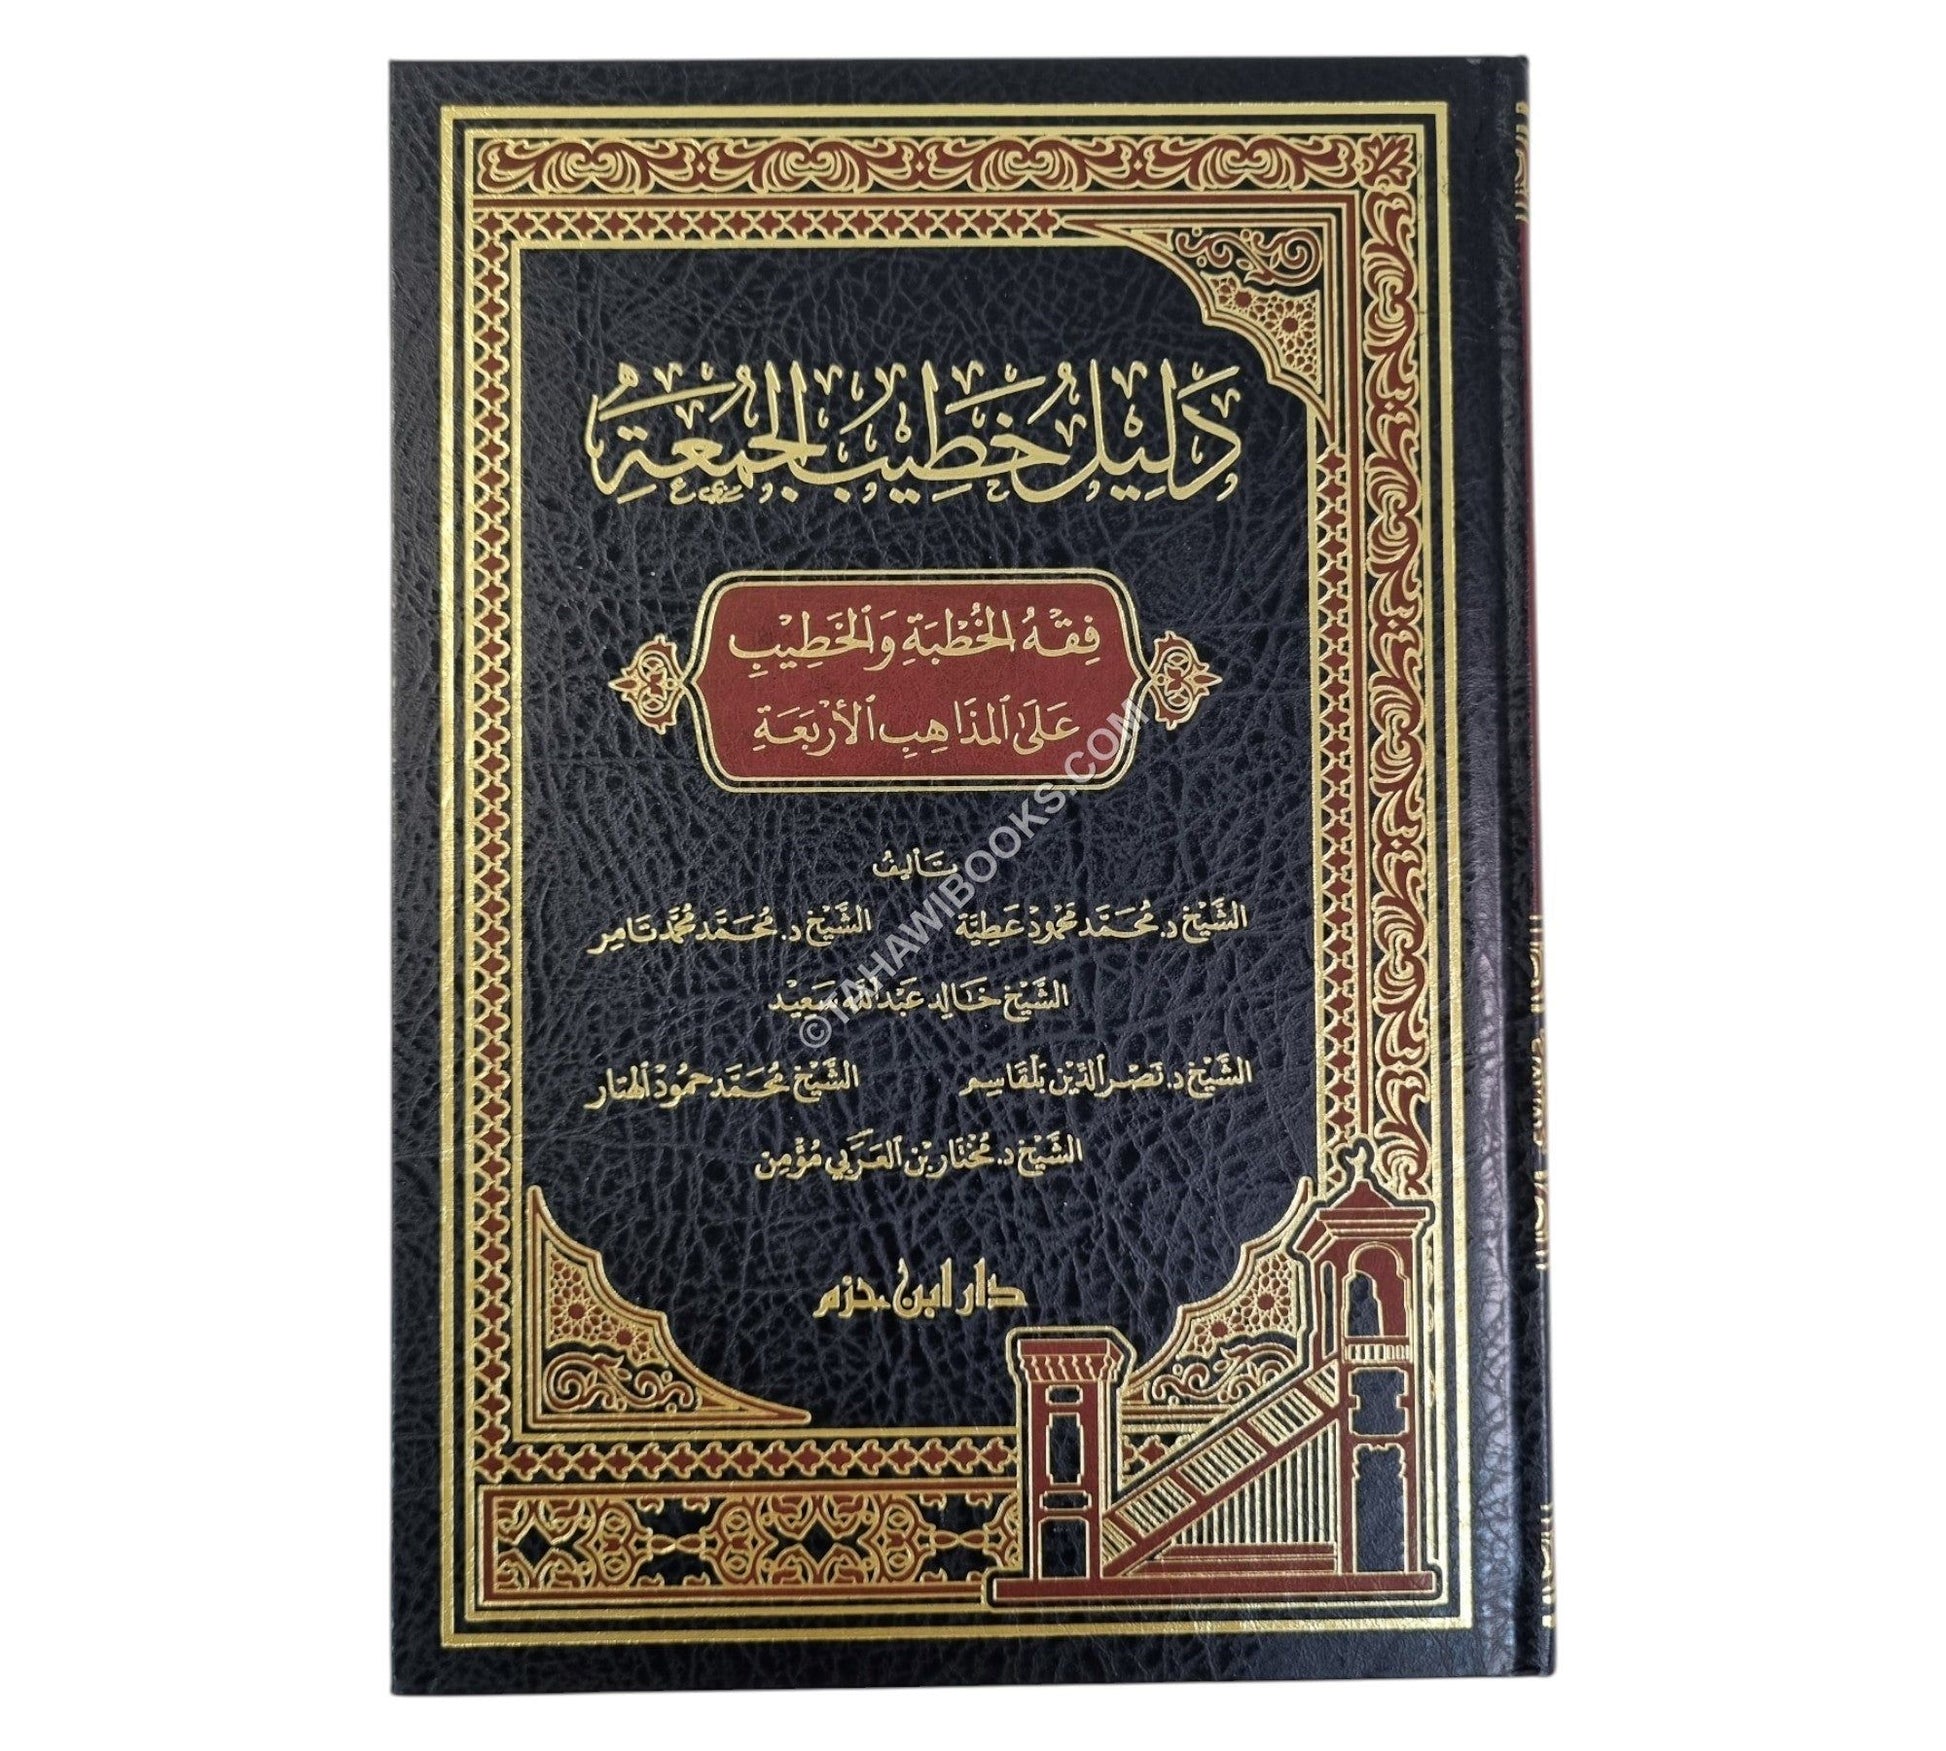 دَلِيلُ خَطِيبِ الجُمُعَةِ
فِقْهُ الخُطْبَةِ وَالخَطِيْبِ
عَلَى المَذَاهِبِ الأَرْبَعَةِ
تَأليفُ
الشَّيْخ د. مُحَمَّد مَحْمُود عَطِيَّة الشَّيْخ د. مُحَمَّد مُحَمَّد تَامِر
الشَّيْخ خَالِد عَبْدُ اللَّه سَعِيْد
الشَّيْخ د. نَصْر الدِّيْن بَلْقَاسِم الشَّيْخ مُحَمَّد حَمُوْد الهتار
الشَّيْخ د. مُخْتَار بْن العَرَبِي مُؤْمِن
دار ابن حزم
©TAHAWIBOOKS.COM